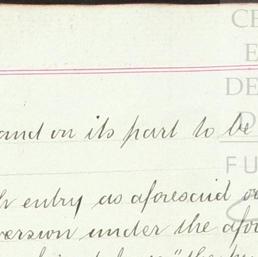 CE
E
DE
D
and on its part to be
FU
entry as aforesaid
version under the afor